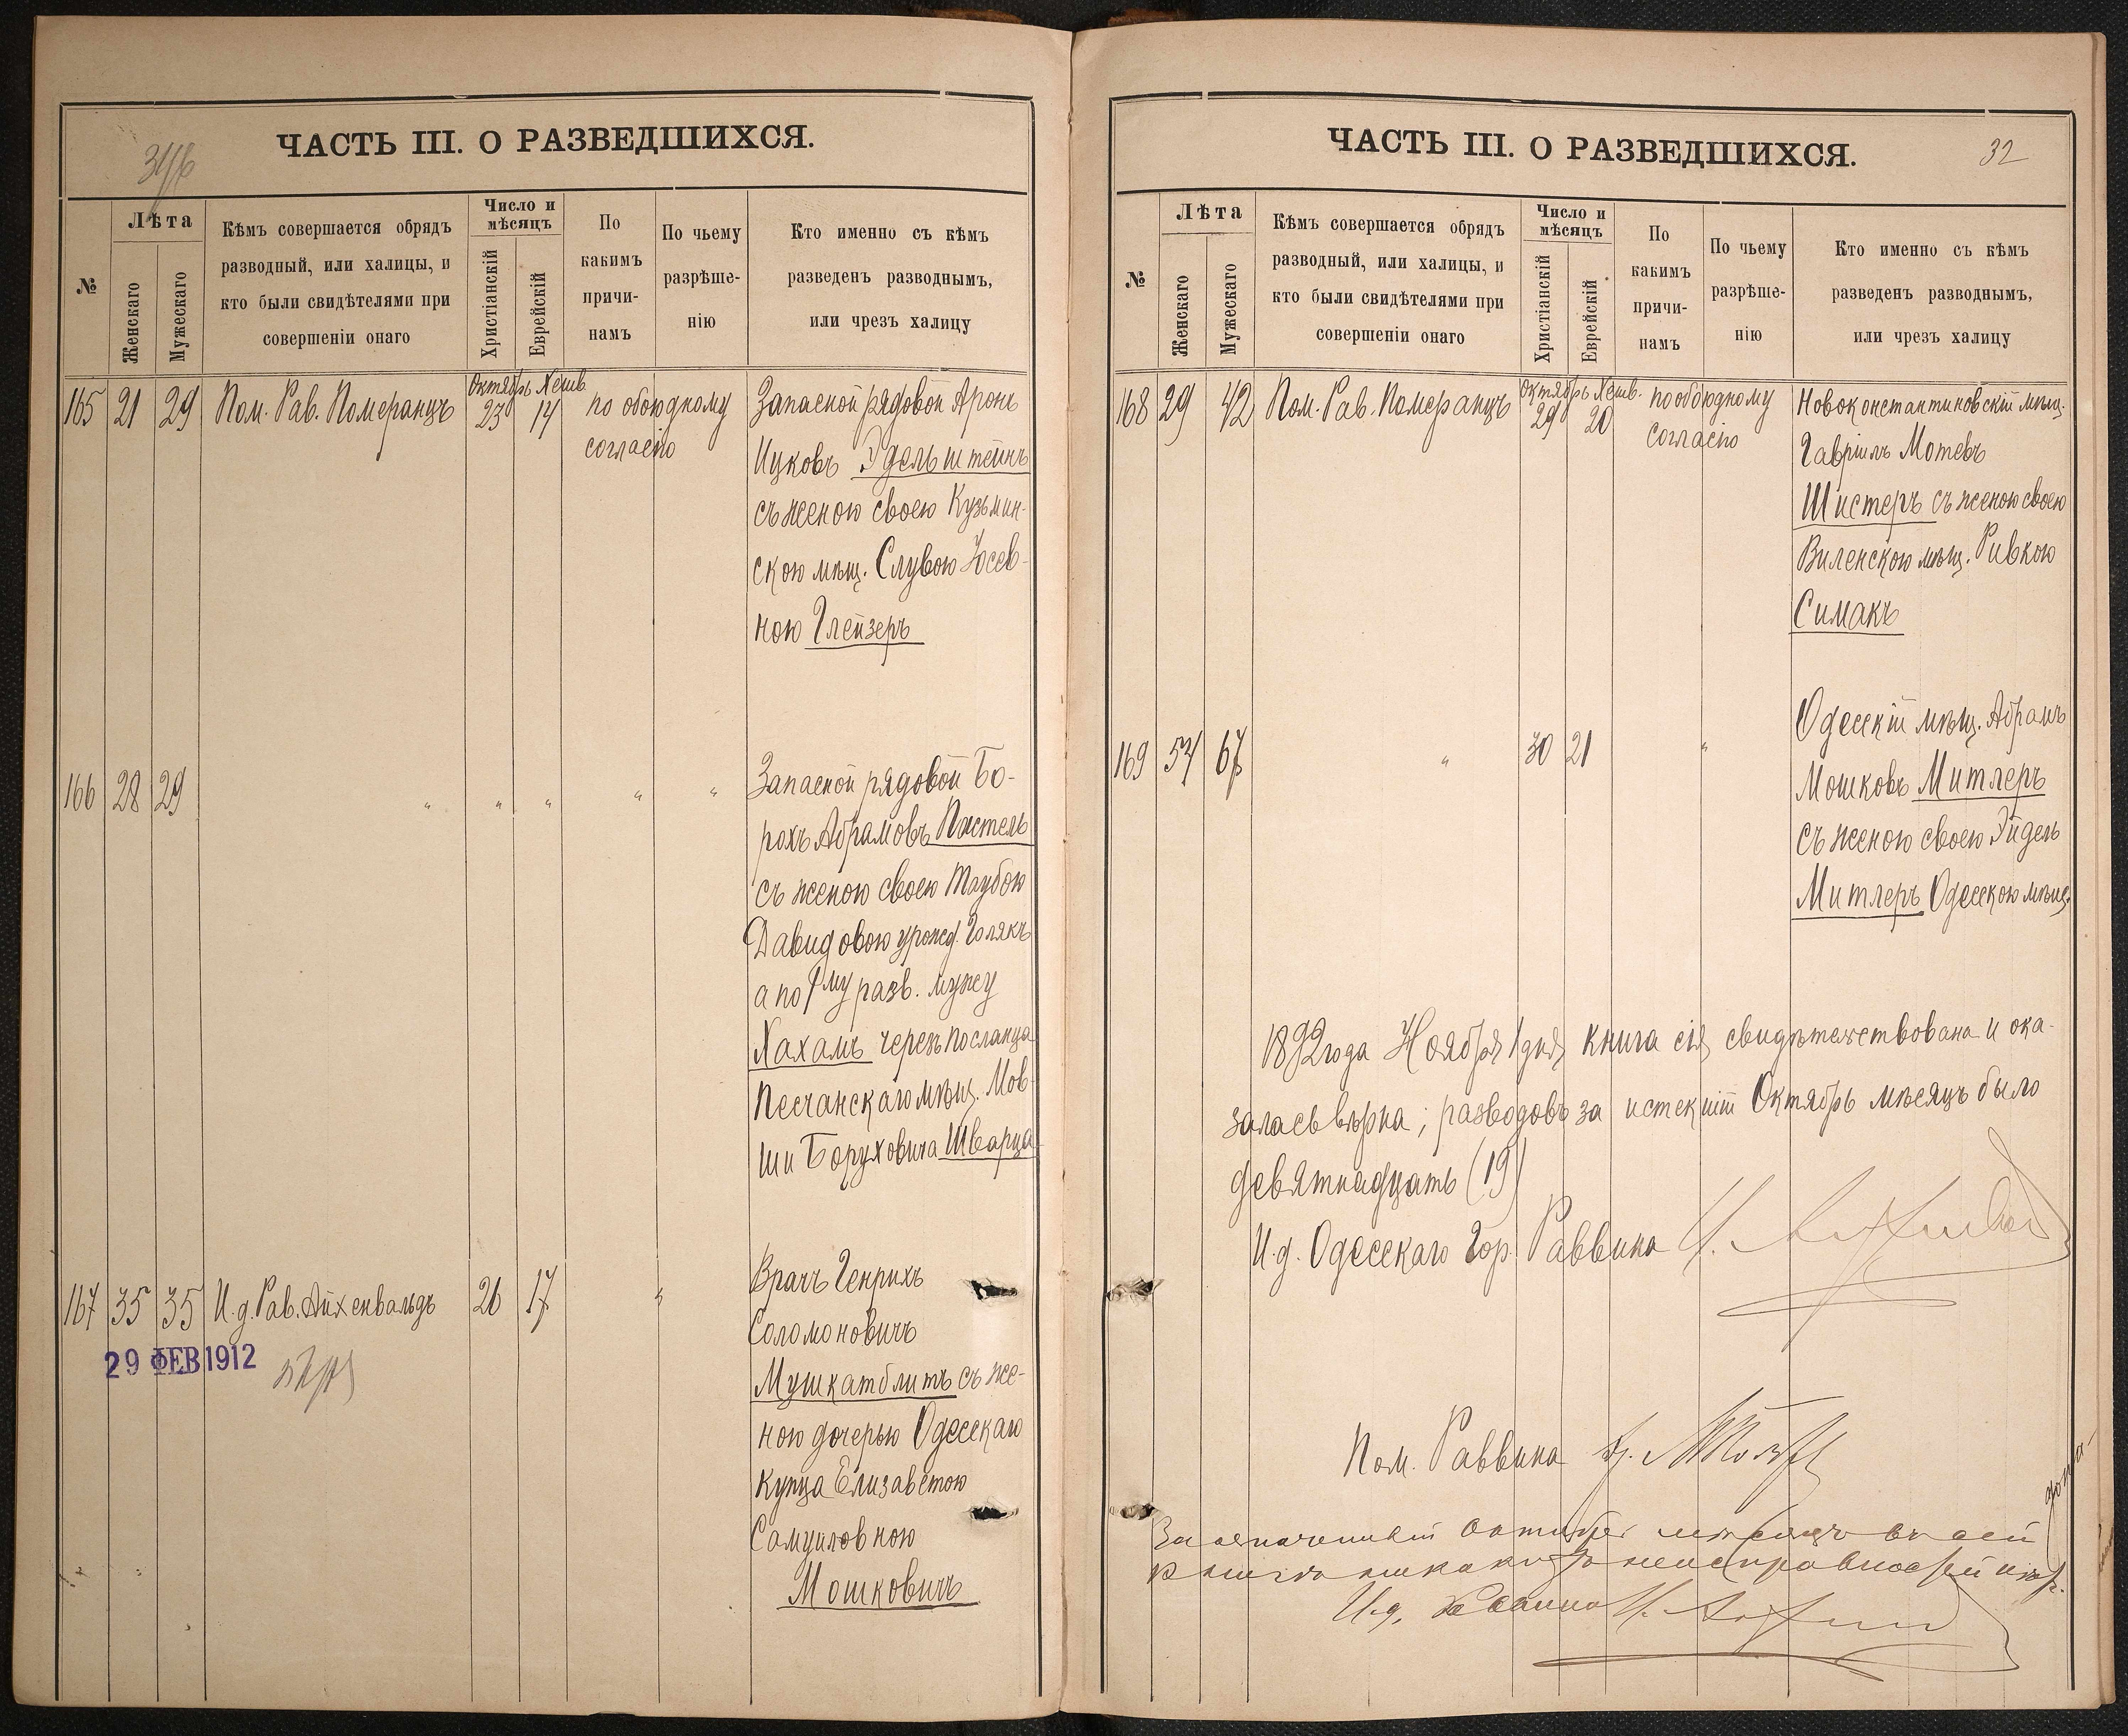 ЧАСТЬ III. О РАЗВЕДШИХСЯ.
№
Лѣта
Женскаго
Мужескаго
Кѣмъ совершается обрядъ
разводный, или халицы, и
кто были свидѣтелями при
совершеніи онаго
Число и
мѣсяцъ
Христіанскій
Еврейскій
По
какимъ
причи-
намъ
По чьему
разрѣше-
нію
Кто именно съ кѣмъ
разведенъ разводнымъ,
или чрезъ халицу
Октябрь Хешв.
165 21 29 Пом. Рав. Померанцъ 23 14 по обоюдному Запасной рядовой Аронъ
согласію
Ицковъ Эдельштейнъ
съ женою своею Кузьмин-
скою мѣщ. Слувою Іосев-
ною Глейзеръ
166 28 29 " " " " " Запасной рядовой Бо-
рохъ Абрамовъ Пастель
съ женою своею Таубою
Давидовою урожд. Голякъ
а по 1му разв. мужу
Хахамъ черезъ посланца
Песчанскаго мѣщ. Мов-
ши Боруховича Шварца
167 35 35 И. д. Рав. Айхенвальдъ 26 17 " Врачъ Генрихъ
Соломоновичъ
Мушкатблитъ съ же-
ною дочерью Одесскаго
купца Елизаветою
Самуиловною
Мошковичъ
29 ФЕВ 1912
ЧАСТЬ III. О РАЗВЕДШИХСЯ.
32
№
Лѣта
Женскаго
Мужескаго
Кѣмъ совершается обрядъ
разводный, или халицы, и
кто были свидѣтелями при
совершеніи онаго
Число и
мѣсяцъ
Христіанскій
Еврейскій
По
какимъ
причи-
намъ
По чьему
разрѣше-
нію
Кто именно съ кѣмъ
разведенъ разводнымъ,
или чрезъ халицу
Октябрь Хешв.
168 29 42 Пом. Рав. Померанцъ 29 20 по обоюдному Новоконстантиновскій мѣщ.
согласію
Гавріилъ Мотевъ
Шистеръ съ женою своею
Виленскою мѣщ. Ривкою
Симакъ
Одесскій мѣщ. Абрамъ
169 54 67 " 30 21 " Мошковъ Митлеръ
съ женою своею Эйдель
Митлеръ Одесскою мѣщ.
1892 года Ноября 1 дня книга сія свидѣтельствована и ока-
залась вѣрна; разводовъ за истекшій Октябрь мѣсяцъ было
девятнадцать (19)
И. д. Одесскаго Гор. Раввина
Пом. Раввина
За означенный Октябрь мѣсяцъ въ сей
книгѣ никакихъ неисправностей
И. д. Раввина